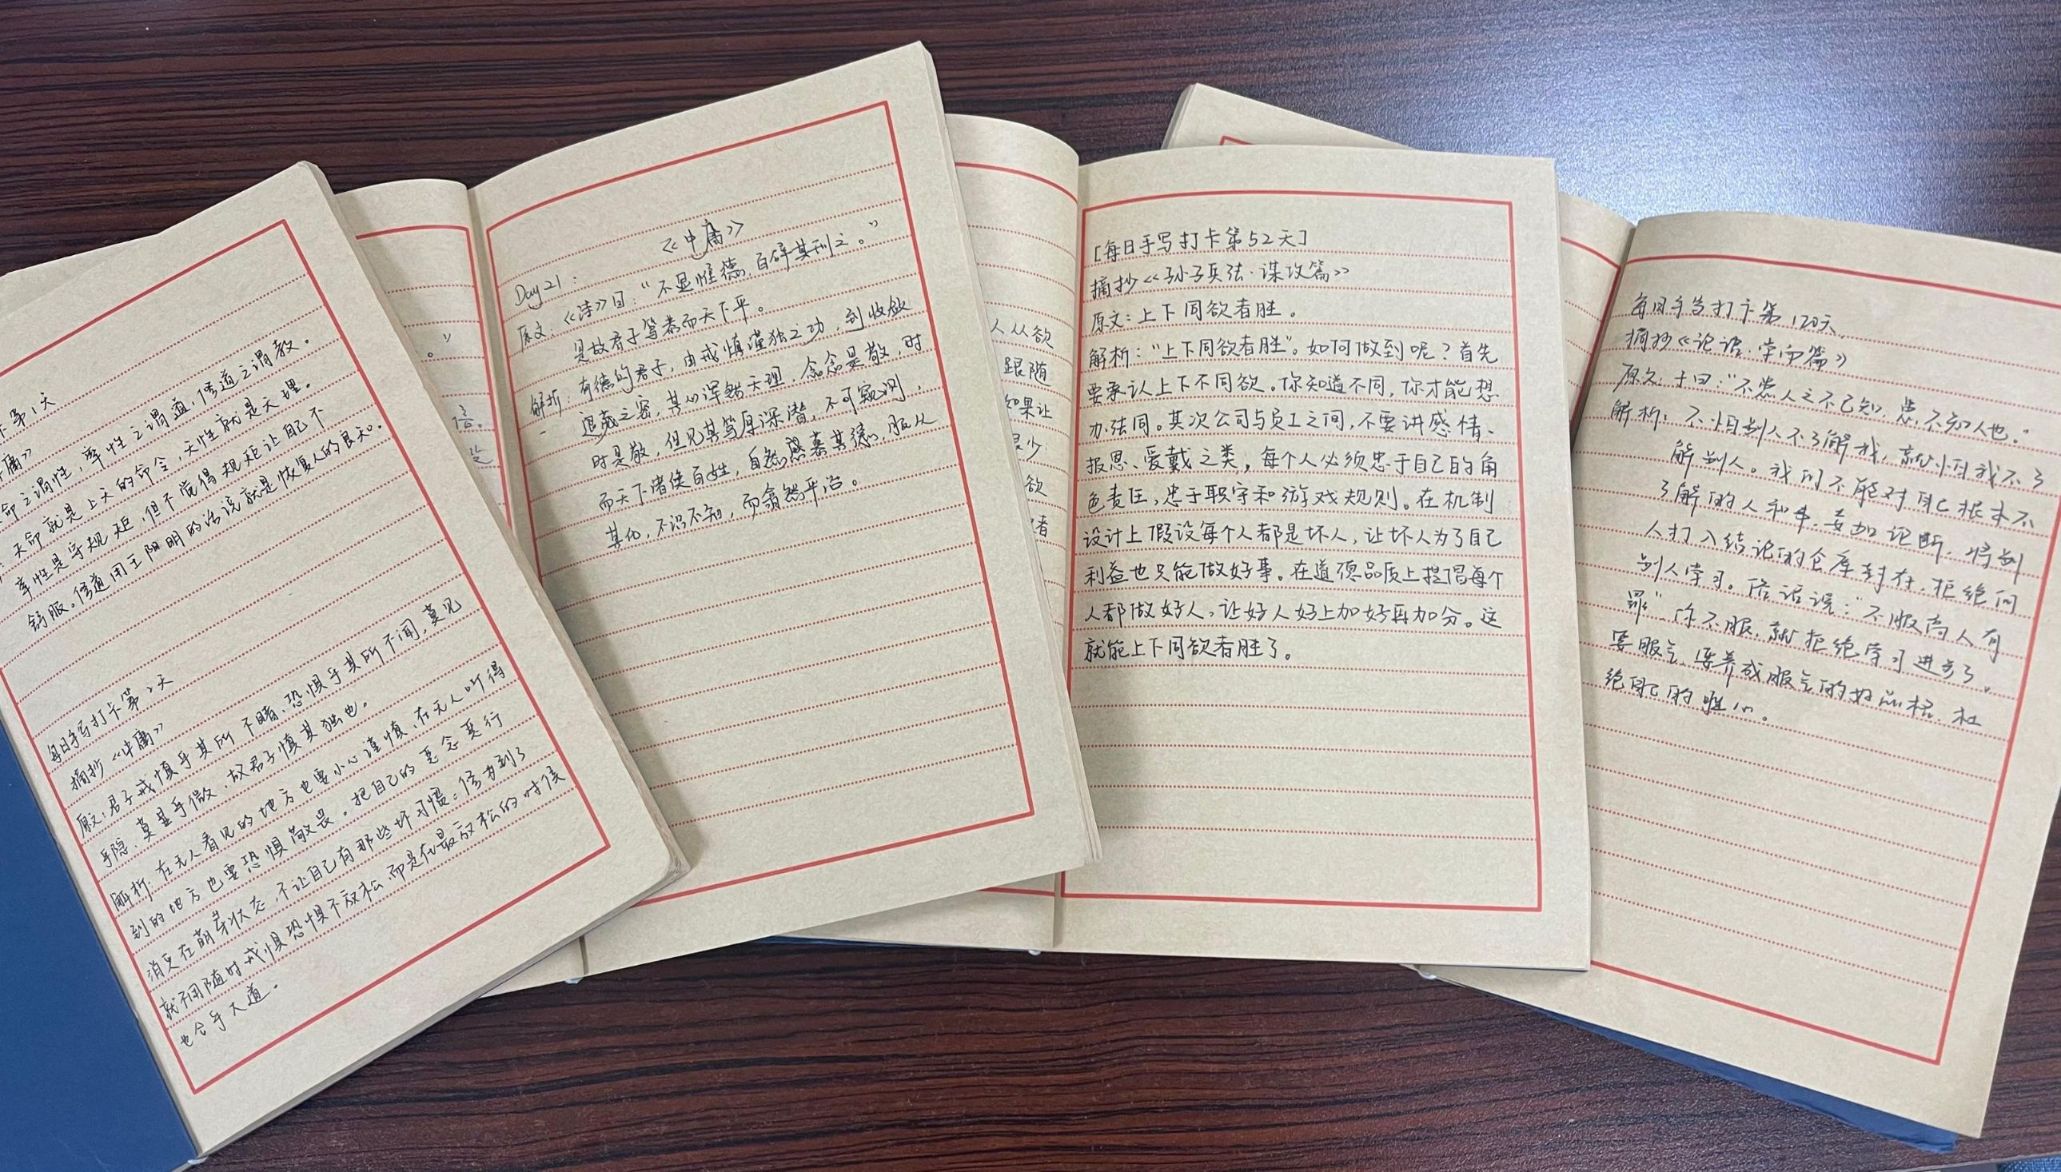 卡第1天
庸》
命之谓性，率性之谓道，修道之谓教。
天命就是上天的命令，天性就是天理。
率性是守规矩，但不觉得规矩让自己不
舒服。修道用王阳明的话说就是恢复人的良知。
每日手写打卡第2天
摘抄《中庸》
原文：君子戒慎乎其所不睹，恐惧乎其所不闻，莫见
乎隐，莫显乎微，故君子慎其独也。
解析：在无人看见的地方也要小心谨慎，在无人听得
到的地方也要恐惧敬畏。把自己的恶念恶行
消灭在萌芽状态，不让自己有那些坏习惯。修为到了
就不用随时戒惧恐惧不放松，而是在最放松的时候
也合乎大道。
。”
《中庸》
Day 21：
原文：《诗》曰：“不显惟德，百辟其刑之。”
是故君子笃恭而天下平。
解析：有德的君子，由戒慎谨独之功，到收敛
退藏之密，其心浑然天理，念念是敬，时
时是敬，但见其笃厚深潜，不可窥测，
而天下诸侯百姓，自然感慕其德，服从
其化，不识不知，而翕然平治。
人从欲
跟随
如果让
很少
欲
者
[每日手写打卡第52天]
摘抄《孙子兵法·谋攻篇》
原文：上下同欲者胜。
解析：“上下同欲者胜”。如何做到呢？首先
要承认上下不同欲。你知道不同，你才能想
办法同。其次公司与员工之间，不要讲感情、
报恩、爱戴之类，每个人必须忠于自己的角
色责任，忠于职守和游戏规则。在机制
设计上假设每个人都是坏人，让坏人为了自己
利益也只能做好事。在道德品质上提倡每个
人都做好人，让好人好上加好再加分。这
就能上下同欲者胜了。
每日手写打卡第120天
摘抄《论语·学而篇》
原文：子曰：“不患人之不己知，患不知人也。”
解析：不怕别人不了解我，就怕我不了
解别人。我们不能对自己根本不
了解的人和事，妄加论断，将别
人打入结论的仓库封存，拒绝向
别人学习。俗话说：“不服高人有
罪”你不服，就拒绝学习进步了。
要服气，培养成服气的好品格，杜
绝自己的胜心。